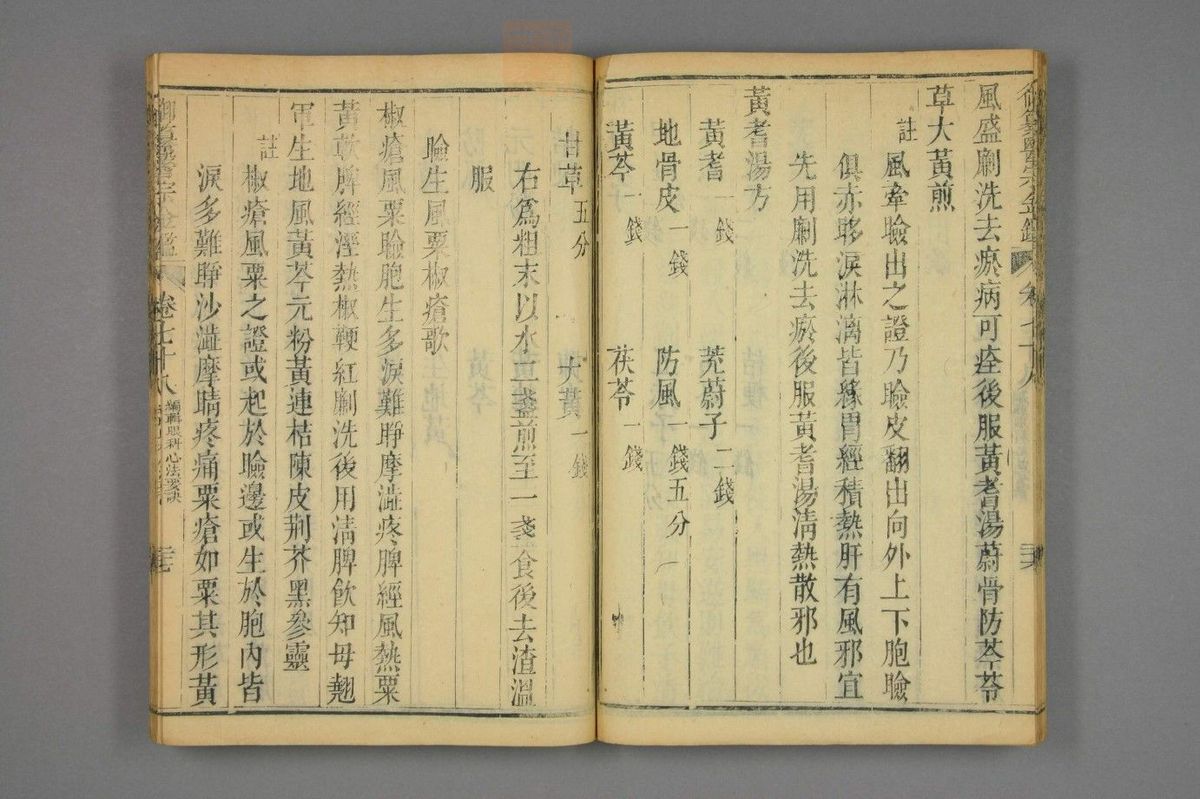 風盛劆洗去瘀病可痊後服黃耆湯蔚骨防芩苓
草大黃煎
註
風牽瞼出之證乃瞼皮翻出向外上下胞瞼
俱赤眵淚淋漓皆緣胃經積熱肝有風邪宜
先用劆洗去瘀後服黃耆湯淸熱散邪也
黃耆湯方
黃耆一錢 茺蔚子二錢
地骨皮一錢 防風一錢五分
黃芩一錢 茯苓一錢
甘草五分 大黃一錢
右爲粗末以水二盞煎至一盞食後去渣溫
服
瞼生風粟椒瘡歌
椒瘡風粟瞼胞生多淚難睜摩澁疼脾經風熱粟
黃軟脾經溼熱椒鞕紅劆洗後用淸脾飮知母翹
軍生地風黃芩元粉黃連桔陳皮荊芥黑參靈
註
椒瘡風粟之證或起於瞼邊或生於胞內皆
淚多難睜沙澁摩睛疼痛粟瘡如粟其形黃
卷七十八
編輯眼科心法要訣